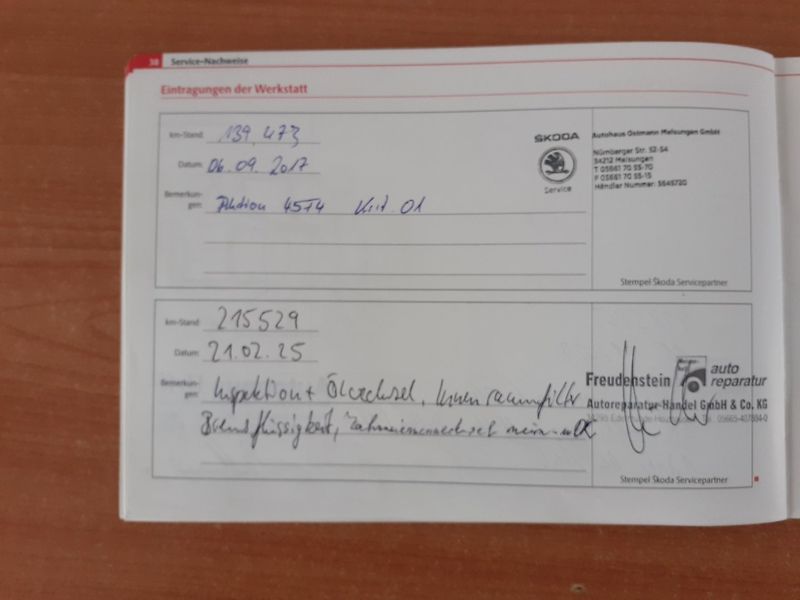 38 Service-Nachweise
Eintragungen der Werkstatt
km-Stand: 139.473
Datum: 06.09.2017
Bemerkun-
gen: Aktion 45T4 Krit. 01
ŠKODA
Service
Autohaus Ostmann Melsungen GmbH
Nürnberger Str. 52-54
34212 Melsungen
T 05661 70 55-70
F 05661 70 55-15
Händler Nummer: 5645720
Stempel Škoda Servicepartner
km-Stand: 215529
Datum: 21.02.25
Bemerkun-
gen: Inspektion + Ölwechsel, Innenraumfilter
Bremsflüssigkeit, Zahnriemenwechsel
Freudenstein auto
reparatur
Autoreparatur-Handel GmbH & Co. KG
Stempel Škoda Servicepartner